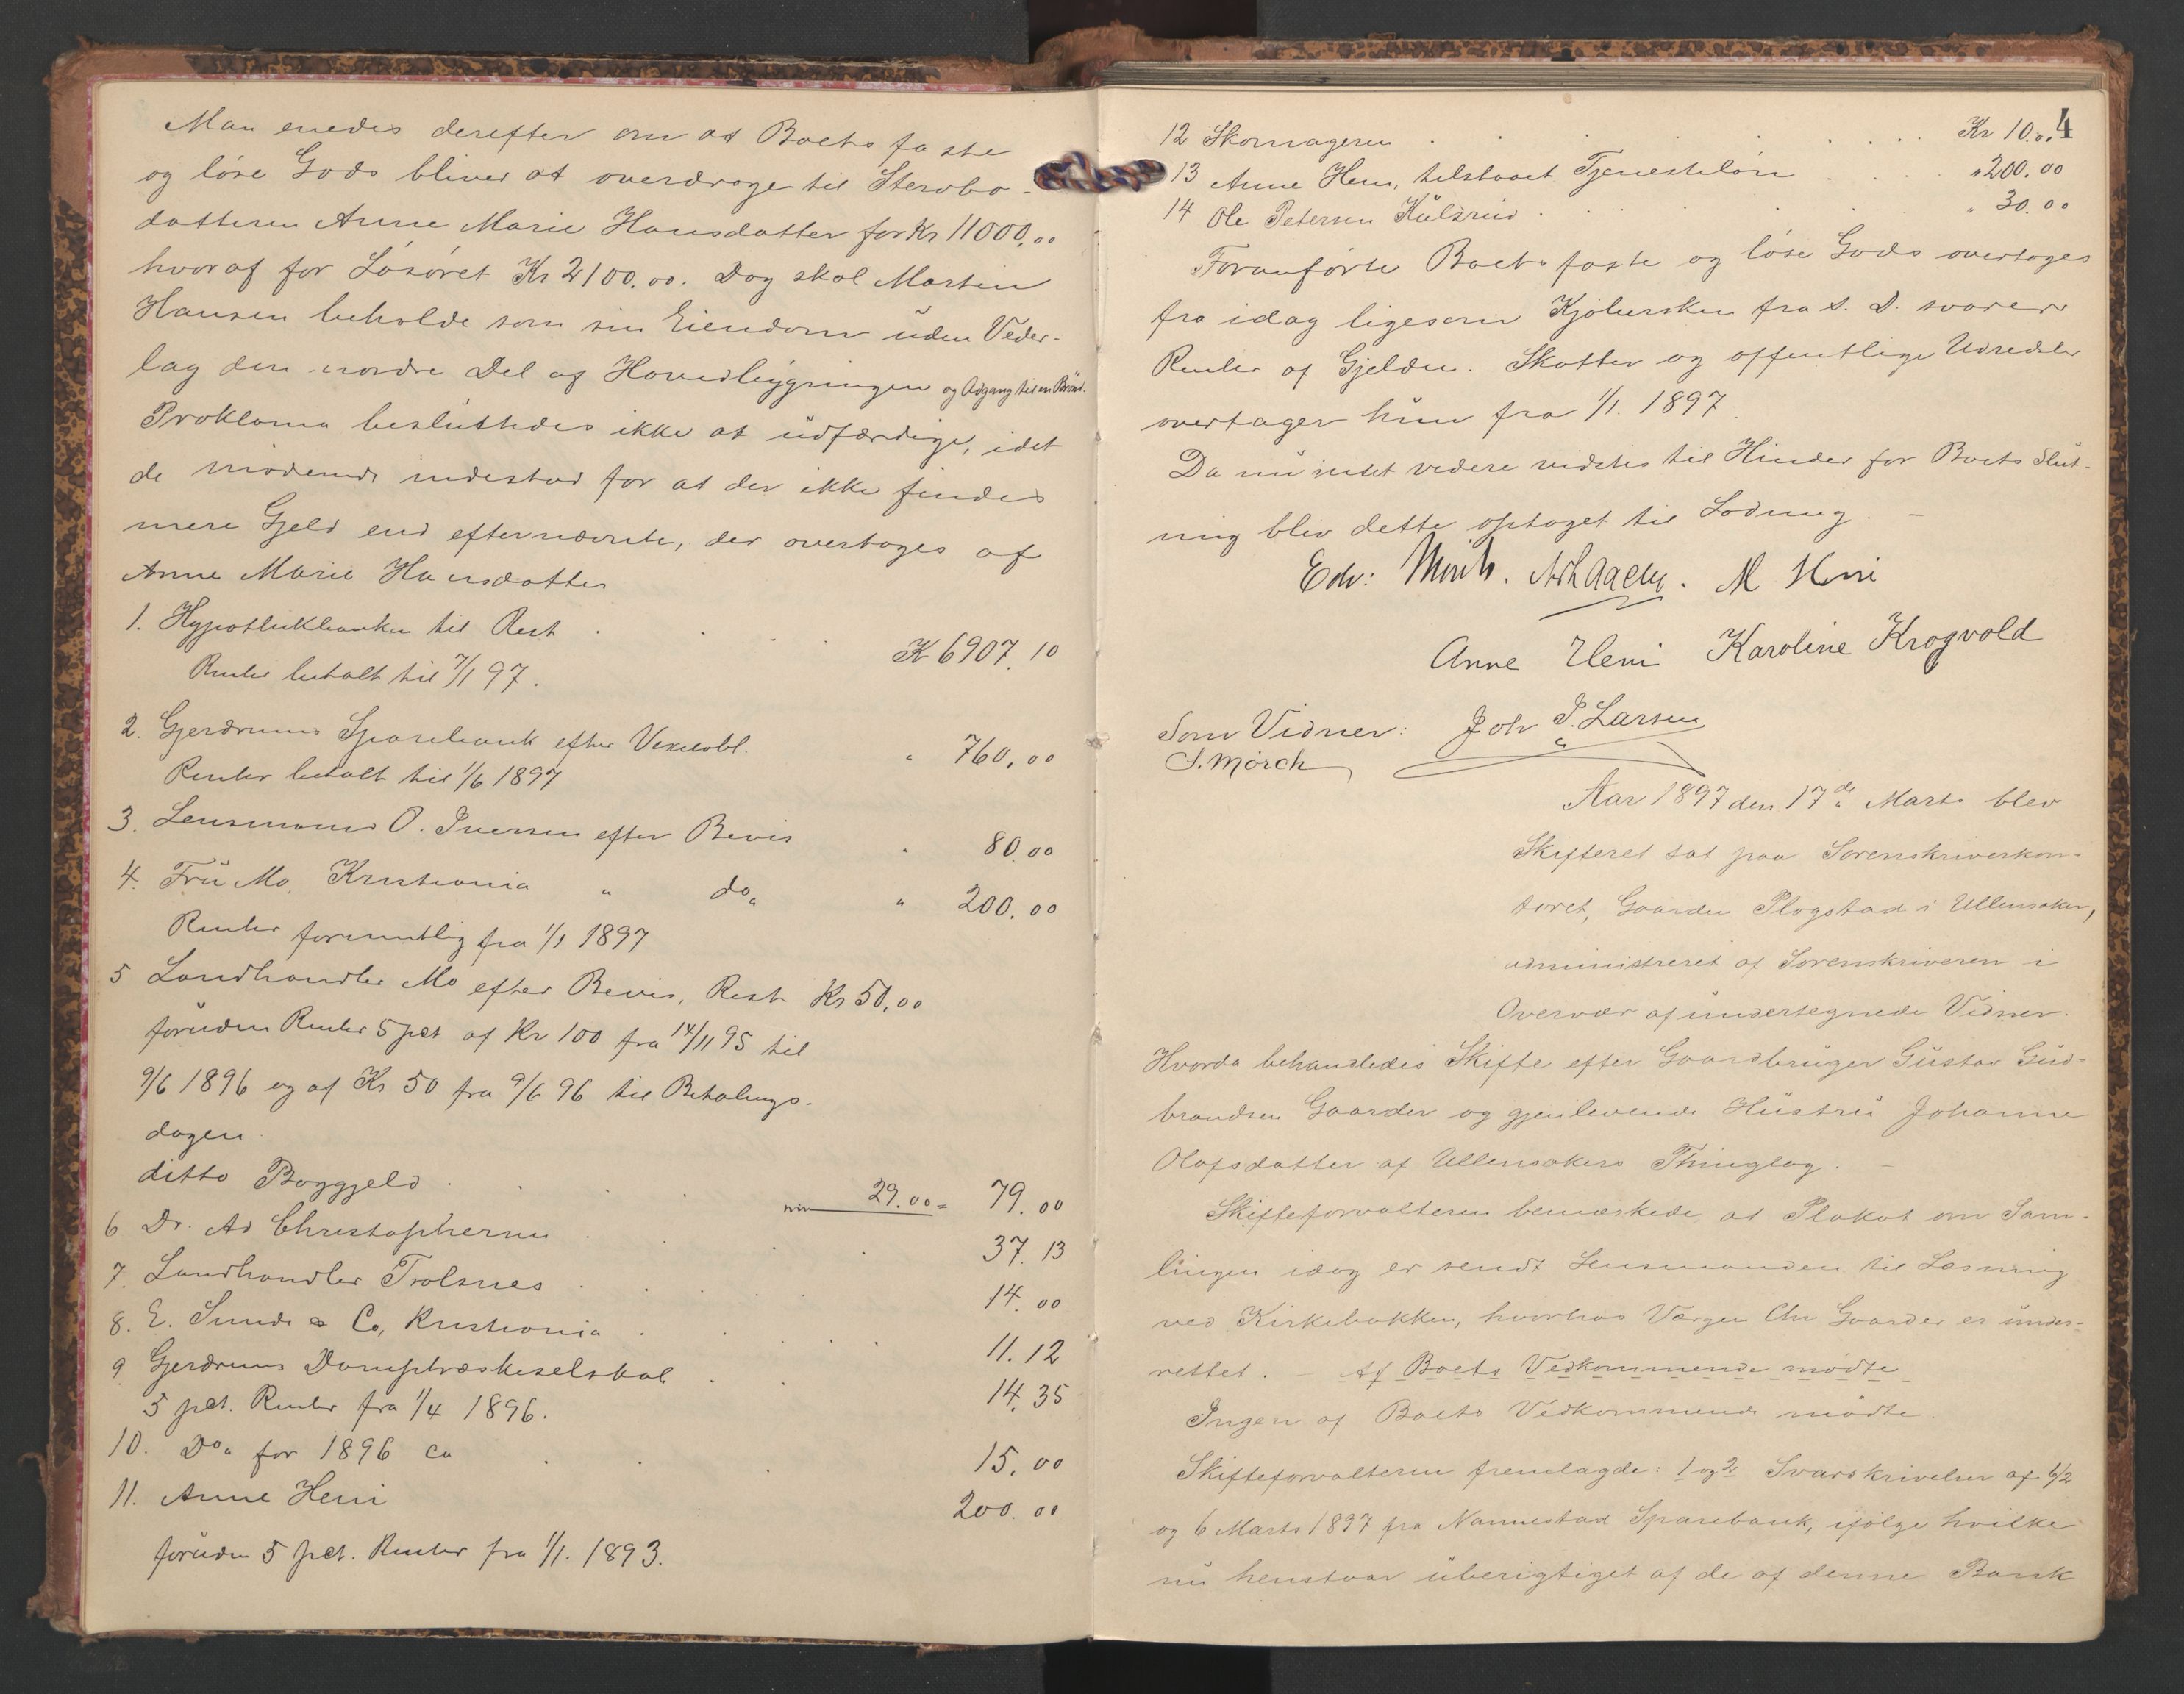 Man enedes derefter om at Boets faste
og løse Gods bliver at overdrage til Stervbo-
datteren Anne Marie Hansdatter for Kr 11000,00
hvoraf for Løsøret Kr 2100.00. Dog skal Martin
Hansen beholde som sin Eiendom uden Veder-
lag den nordre Del af Hovedbygningen og Adgang til en Brønd.
Proklama besluttedes ikke at udfærdige, idet
de mødende indestod for at der ikke findes
mere Gjeld end efternævnte, der overtages af
Anne Marie Hansdatter
1. Hypothekbanken til Rest . . . . K 6907.10
Renter betalt til 7/1 97.
2. Gjerdrums Sparebank efter Vexelobl. " 760,00
Renter betalt til 1/6 1897
3. Lensmand O. Iversen efter Bevis " 80.00
4. Frü Mo, Kristiania " do " 200.00
Renter formentlig fra 1/1 1897
5 Landhandler Mo efter Bevis, Rest Kr 50,00
foruden Renter 5 pct af Kr 100 fra 14/11 95 til
9/6 1896 og af Kr 50 fra 9/6 96 til Betalings-
dagen.
ditto Boggjeld . . . 29.00 = 79.00
6 Dr. Ad Christophersen . . . 37.13
7. Landhandler Trolsnes . . . . 14.00
8. E. Sunde & Co, Kristiania . . . 11.12
9 Gjerdrums Damptræskeselskab . . 14.35
5 pct. Renter fra 1/4 1896.
10. Do for 1896 ca . . . 15.00
11. Anne Heni 200.00
foruden 5 pct. Renter fra 1/1. 1893.
4
12 Skomageren . . . . . . Kr 10.00
13 Anne Heni, tilstaaet Tjenesteløn . . . . " 200.00
14 Ole Petersen Kulsrud . . . . . " 30.00
Foranførte Boets faste og løse Gods overtages
fra idag ligesom Kjøbersken fra s. D. svarer
Renter af Gjelden. Skatter og offentlige Udredsler
overtager hun fra 1/1. 1897.
Da nu intet videre vidstes til Hinder for Boets Slut-
ning blev dette optaget til Lodning. -
Edv: Mørch. M Heni
Anne Heni Karoline Krogvold
Som Vidner: Joh P. Larsen
S. Mørch
Aar 1897 den 17de Marts blev
Skifteret sat paa Sorenskriverkon-
toret, Gaarden Plogstad i Ullensaker,
administreret af Sorenskriveren i
Overvær af undertegnede Vidner.
Hvorda behandledes Skifte efter Gaardbruger Gustav Gud-
brandsen Gaarder og gjenlevende Hustru Johanne
Olafsdatter af Ullensakers Thinglag. -
Skifteforvalteren bemærkede, at Plakat om Sam-
lingen idag er sendt Lensmanden til Læsning
ved Kirkebakken, hvorhos Værgen Chr Gaarder er under-
rettet. - Af Boets Vedkommende mødte
Ingen af Boets Vedkommende mødte
Skifteforvalteren fremlagde: 1 og 2 Svarskrivelser af 6/2
og 6 Marts 1897 fra Nannestad Sparebank, ifølge hvilke
nu henstaar uberigtiget af de af denne Bank